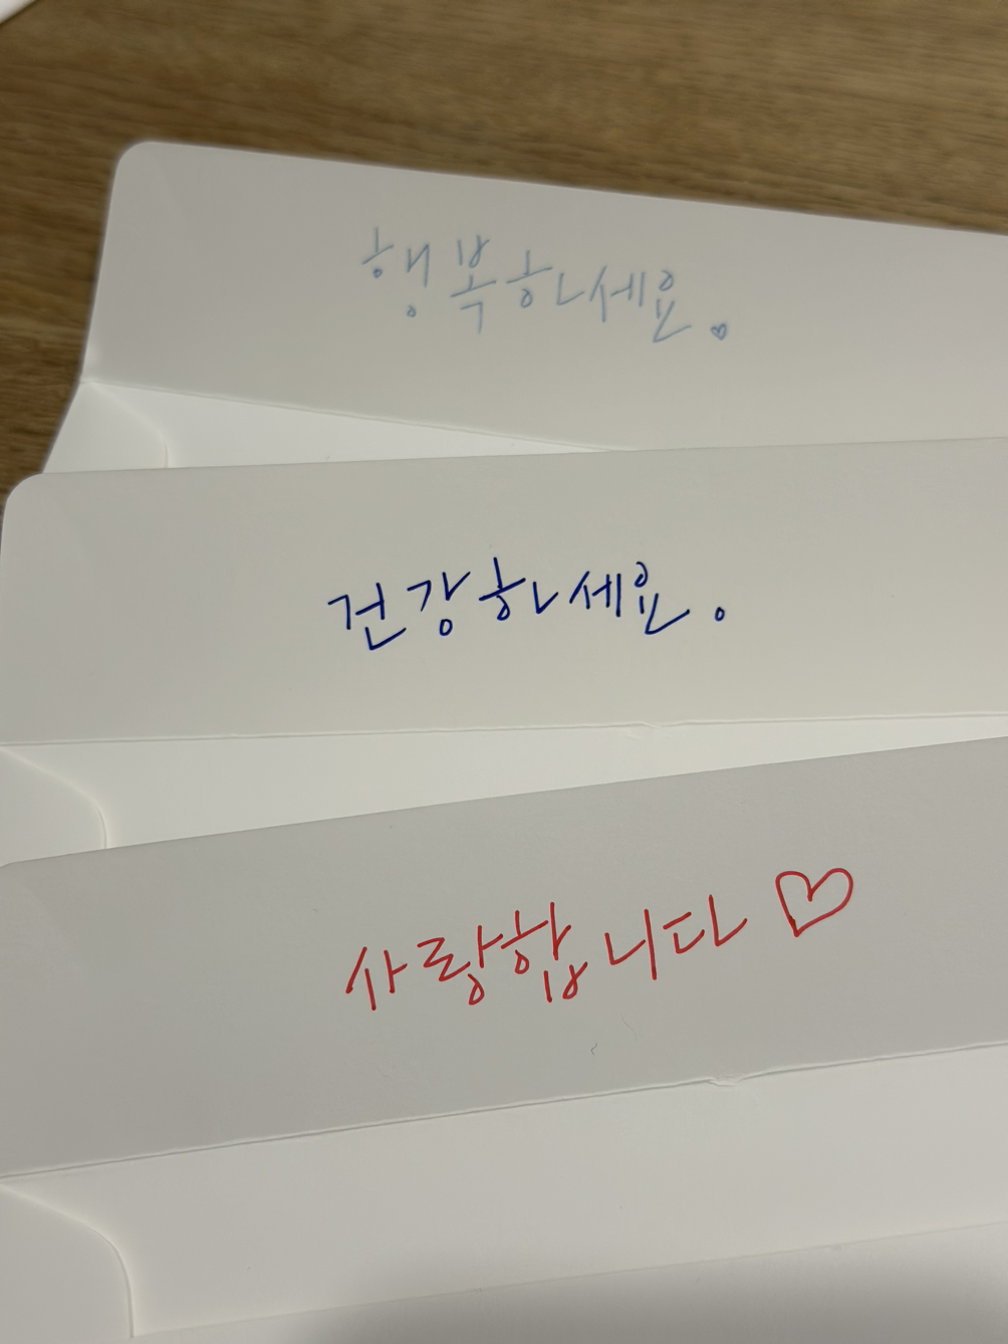 행복하세요.♡
건강하세요.
사랑합니다♡